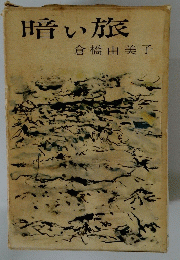 暗い旅
倉橋由美子